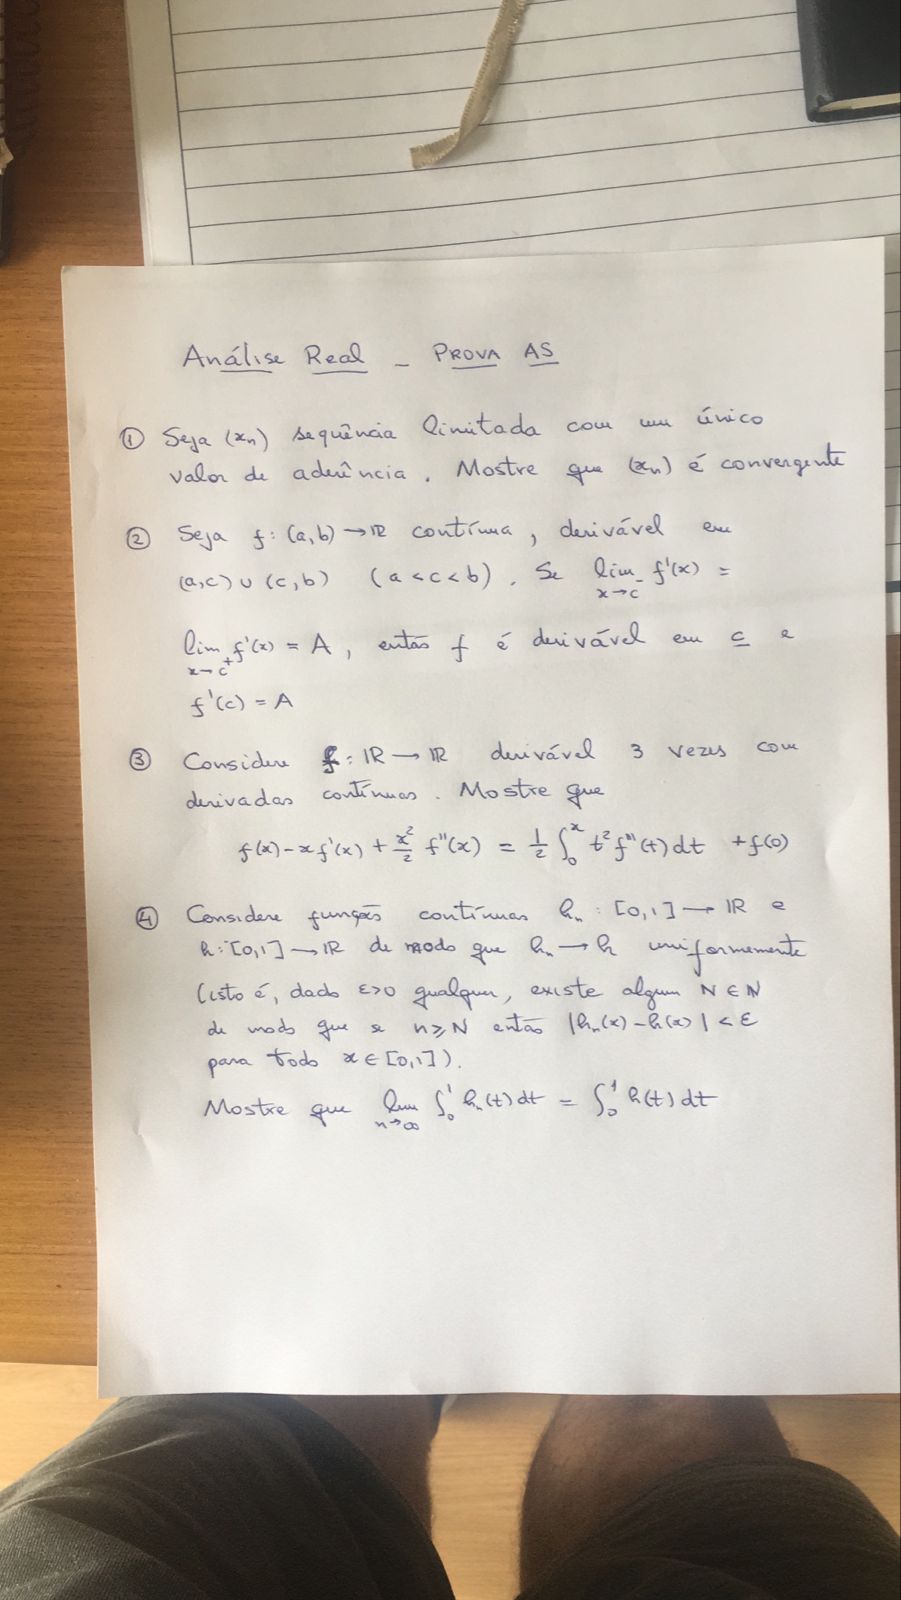 Análise Real - PROVA AS
① Seja (xₙ) sequência limitada com um único
valor de aderência. Mostre que (xₙ) é convergente
② Seja f: (a,b) → ℝ contínua, derivável em
(a,c) ∪ (c,b) (a < c < b). Se lim_{x→c⁻} f'(x) =
lim_{x→c⁺} f'(x) = A, então f é derivável em c e
f'(c) = A
③ Considere f: ℝ → ℝ derivável 3 vezes com
derivadas contínuas. Mostre que
f(x) - x f'(x) + x²/2 f''(x) = 1/2 ∫₀ˣ t² f'''(t) dt + f(0)
④ Considere funções contínuas hₙ: [0,1] → ℝ e
h: [0,1] → ℝ de modo que hₙ → h uniformemente
(isto é, dado ε>0 qualquer, existe algum N ∈ ℕ
de modo que se n ≥ N então |hₙ(x) - h(x)| < ε
para todo x ∈ [0,1]).
Mostre que lim_{n→∞} ∫₀¹ hₙ(t) dt = ∫₀¹ h(t) dt